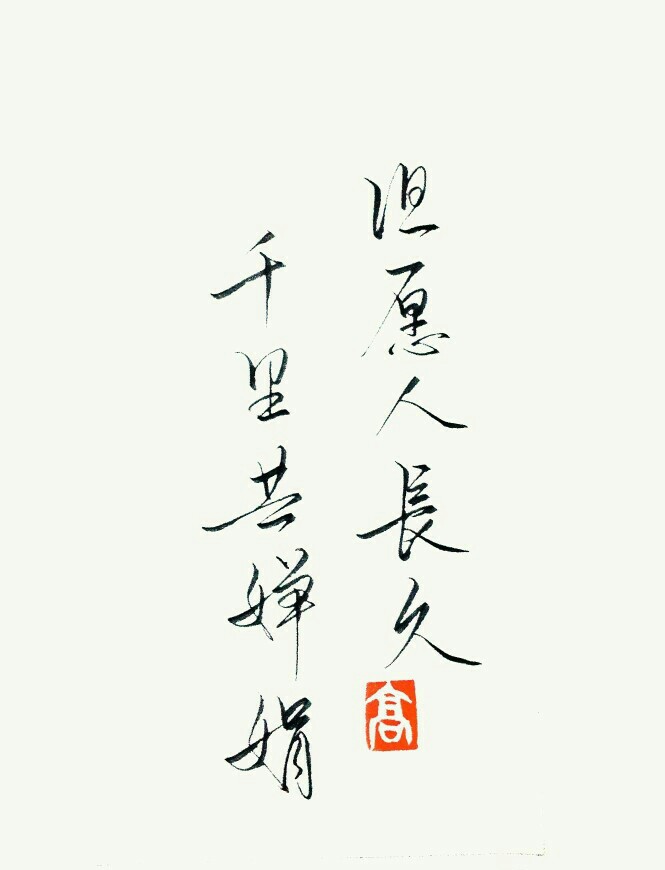 但愿人長久
高
千里共婵娟